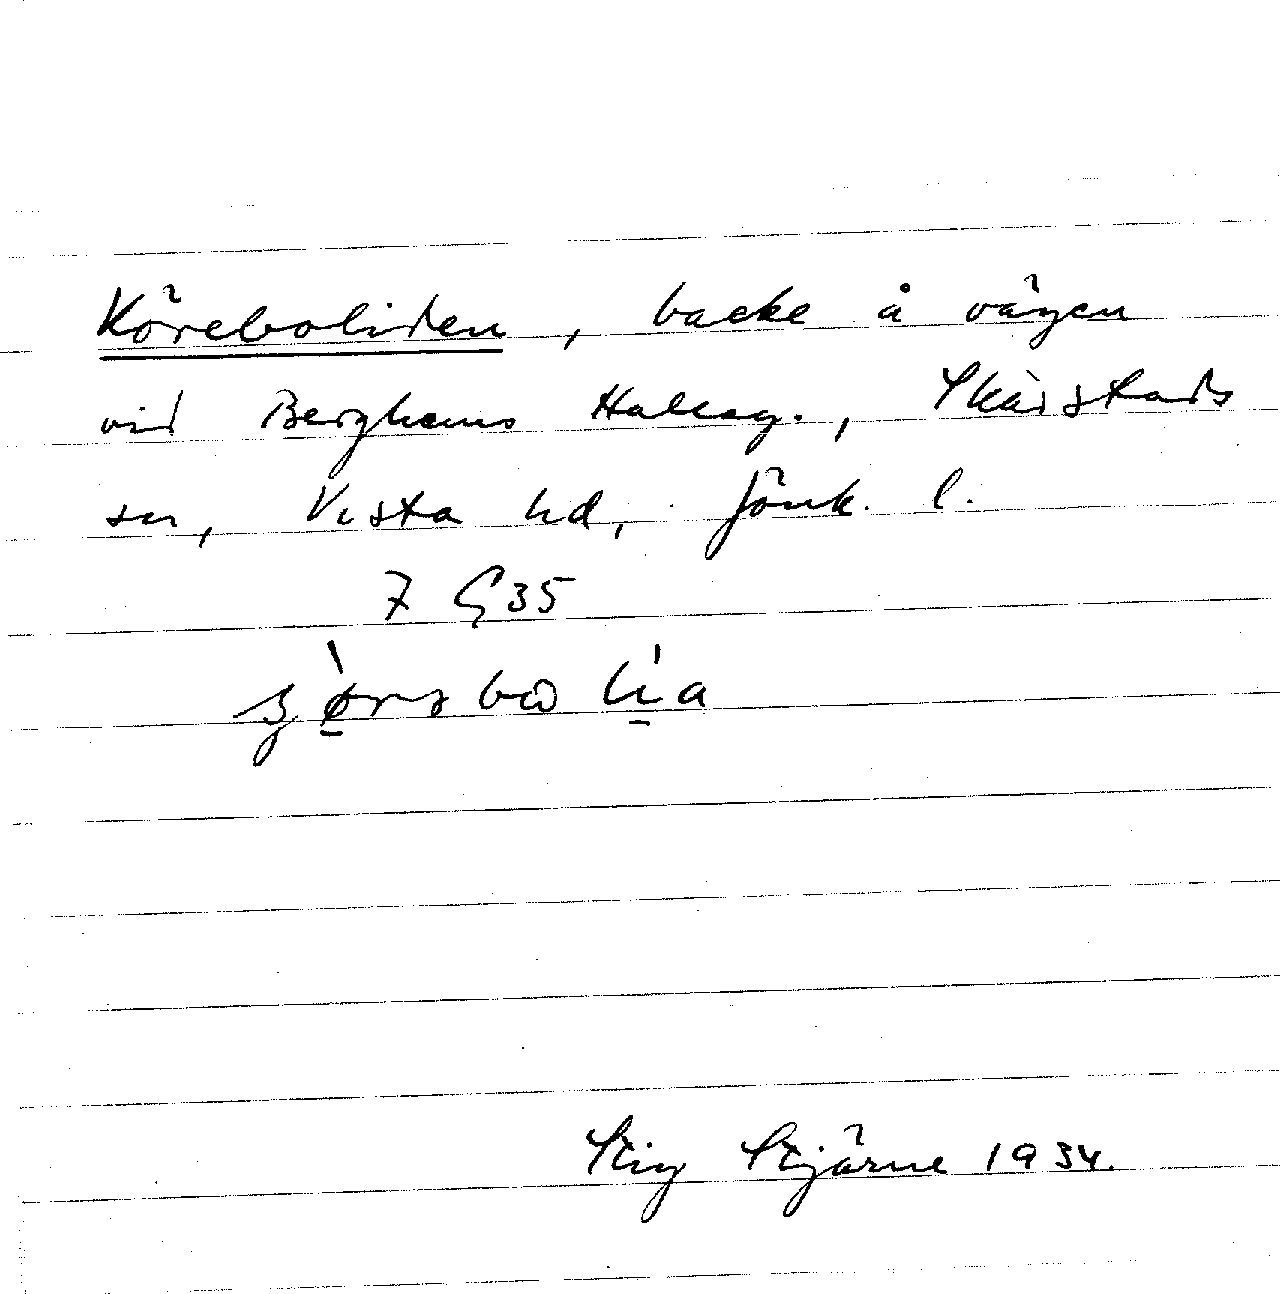 Köreboliden, backe å vägen
vid Berghems Halleg., Skärstads
sn, Vista hd, Jönk. l.
7 G 35
Stig Stjärne 1934.